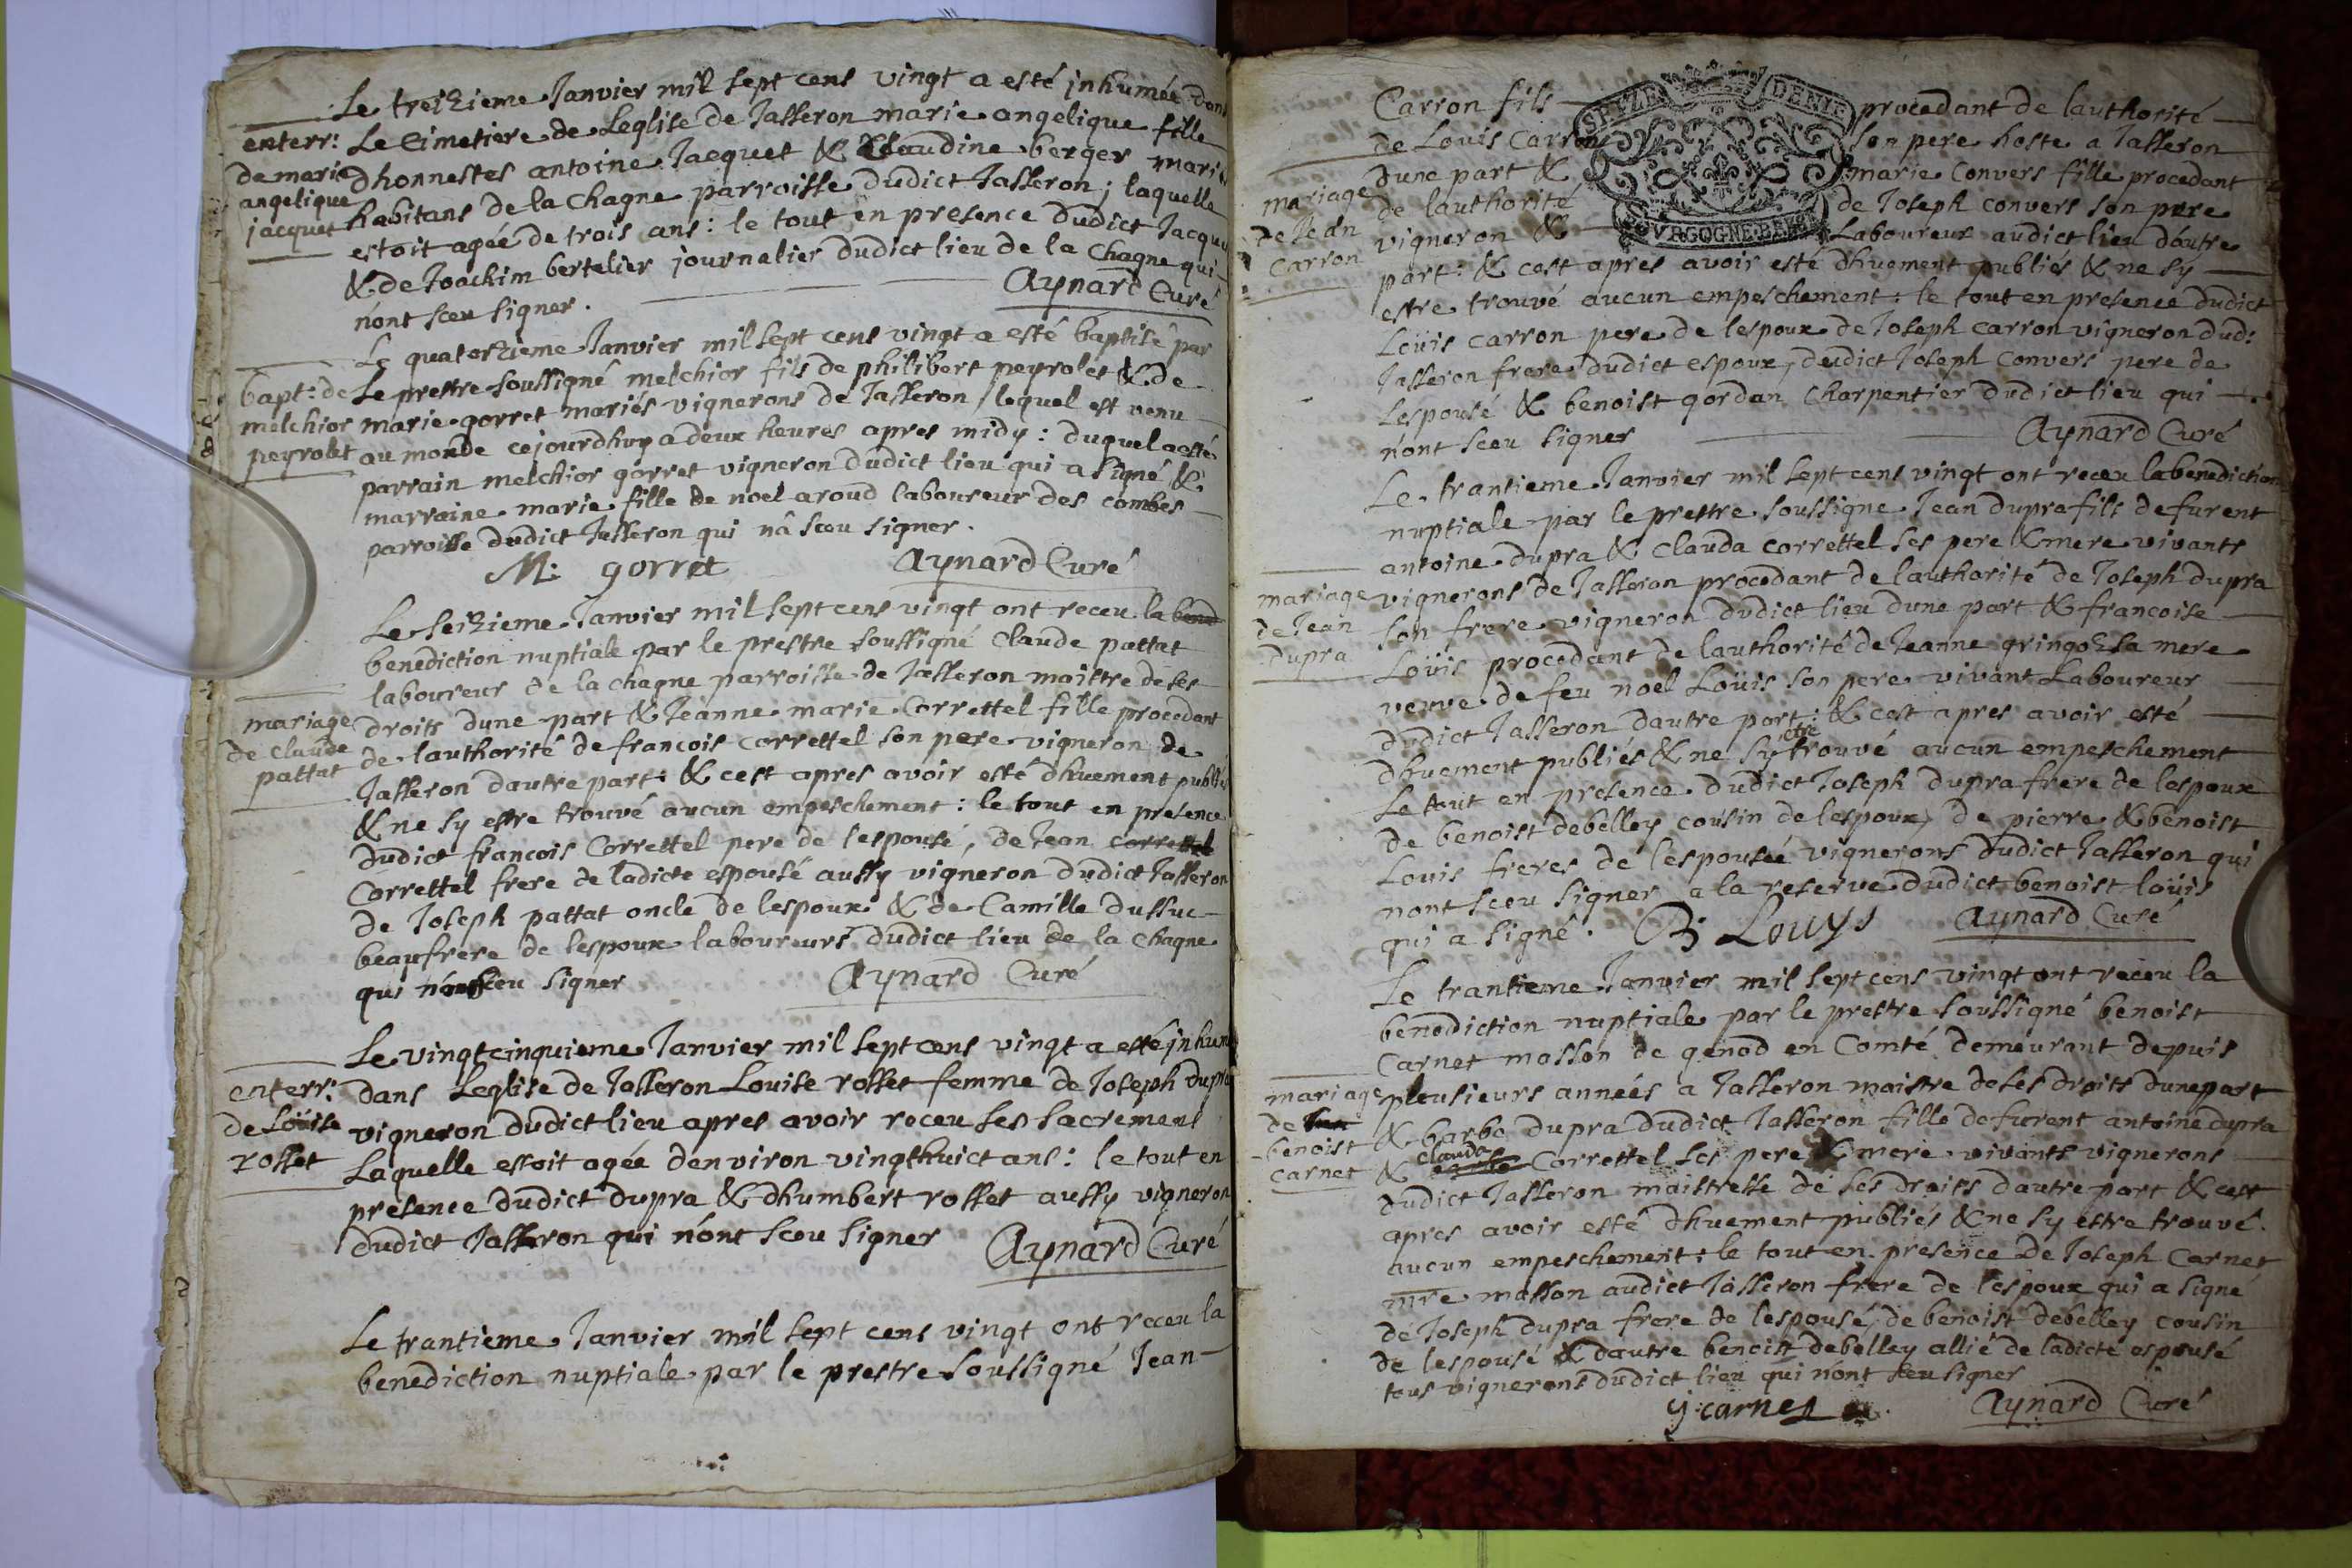 Le treizieme Janvier mil sept cens vingt a esté jnhumée dans
enterr: Le Cimetiere de Leglise de Jasseron marie angelique fille
de marie dhonnestes antoine Jacquet & Claudine berger mariés
angelique habitans de la Chagne parroisse dudict Jasseron; laquelle
jacquet estoit agée de trois ans: le tout en presence dudict Jacquet
& de Joachim bertelier journalier dudict lieu de la Chagne qui
n'ont sceu signer. Aynard Curé
Le quatorzieme Janvier mil sept cens vingt a esté baptisé par
bapt: de Le prestre soussigné melchior fils de philibert peyrolet & de
melchior marie gorret mariés vignerons de Jasseron lequel est venu
peyrolet au monde cejourdhuy a deux heures apres midy: duquel a esté
parrain melchior gorret vigneron dudict lieu qui a signé &
marraine marie fille de noel aroud laboureur des combes
parroisse dudict Jasseron qui n'a sceu signer.
M: gorret Aynard Curé
Le seizieme Janvier mil sept cens vingt ont receu la bened
benediction nuptiale par le prestre soussigné Claude pattat
laboureur de la chagne parroisse de Jasseron maistre de ses
mariage droits dune part & Jeanne marie Correttel fille procedant
de claude de lauthorité de francois correttel son pere vigneron de
pattat Jasseron dautre part: & cest apres avoir esté dhuement publiés
& ne sy estre trouvé aucun empeschement: le tout en presence
dudict francois Correttel pere de lespousé, de Jean correttel
Correttel frere de ladicte espousé aussy vigneron dudict Jasseron
de Joseph pattat oncle de lespoux & de Camille dussuc
beaufrere de lespoux laboureurs dudict lieu de la chagne
qui n'ont sceu signer Aynard Curé
Le vingtcinquieme Janvier mil sept cens vingt a esté jnhumé
enterr: dans Leglise de Jasseron Louise rosset femme de Joseph dupra
de Loüise vigneron dudict lieu apres avoir receu ses sacremens
rosset Laquelle estoit agée denviron vingthuict ans: le tout en
presence dudict dupra & dhumbert rosset aussy vigneron
dudict Jasseron qui n'ont sceu signer Aynard Curé
Le trantieme Janvier mil sept cens vingt ont receu la
benediction nuptiale par le prestre soussigné Jean
SEYZE DENIE
BOVRGOGNE BRES
Carron fils procedant de lauthorité
de Louis Carron son pere hoste a Jasseron
dune part & marie Convers fille procedant
mariage de lauthorité de Joseph convers son pere
de Jean vigneron & Laboureur audict lieu dautre
Carron part: & cest apres avoir esté dhuement publiés & ne sy
estre trouvé aucun empeschement: le tout en presence dudict
Loüis carron pere de lespoux de Joseph carron vigneron dud:
Jasseron frere dudict espoux, dudict Joseph Convers pere de
Lespousé & benoist gordan Charpentier dudict lieu qui
n'ont sceu signer Aynard Curé
Le trantieme Janvier mil sept cens vingt ont receu la benediction
nuptiale par le prestre soussigné Jean dupra fils defurent
antoine dupra & Clauda correttel ses pere & mere vivants
mariage vignerons de Jasseron procedant de lauthorité de Joseph dupra
de Jean son frere vigneron dudict lieu dune part & francoise
dupra Loüis procedant de lauthorité de Jeanne gringoz sa mere
veuve de feu noel Loüis son pere vivant Laboureur
dudict Jasseron dautre part: & cest apres avoir esté
dhuement publiés & ne sy etre trouvé aucun empeschement
Le tout en presence dudict Joseph dupra frere de lespoux
de benoist debelley cousin de lespoux, de pierre & benoist
Louis freres de lespouseé vignerons dudict Jasseron qui
nont sceu signer a la reserve dudict benoist loüis
qui a signé. B; Louys Aynard Curé
Le trantieme Janvier mil sept cens vingt ont receu la
benediction nuptiale par le prestre soussigné benoist
Carnet masson de genod en Comté demeurant depuis
mariage plusieurs années a Jasseron maistre de ses droits dune part
de Jean & barbe dupra dudict Jasseron fille defurent antoine dupra
benoist & clauda Correttel ses pere & mere vivants vignerons
carnet dudict Jasseron maistresse de ses droits dautre part & cest
apres avoir esté dhuement publiés & ne sy estre trouvé
aucun empeschement: le tout en presence de Joseph Carnet
mre masson audict Jasseron frere de lespoux qui a signé
de Joseph dupra frere de lespousé, de benoist debelley cousin
de lespousé & dautre benoist debelley allié de ladicte espousé
tous vignerons dudict lieu qui n'ont sceu signer
j carnet Aynard Curé